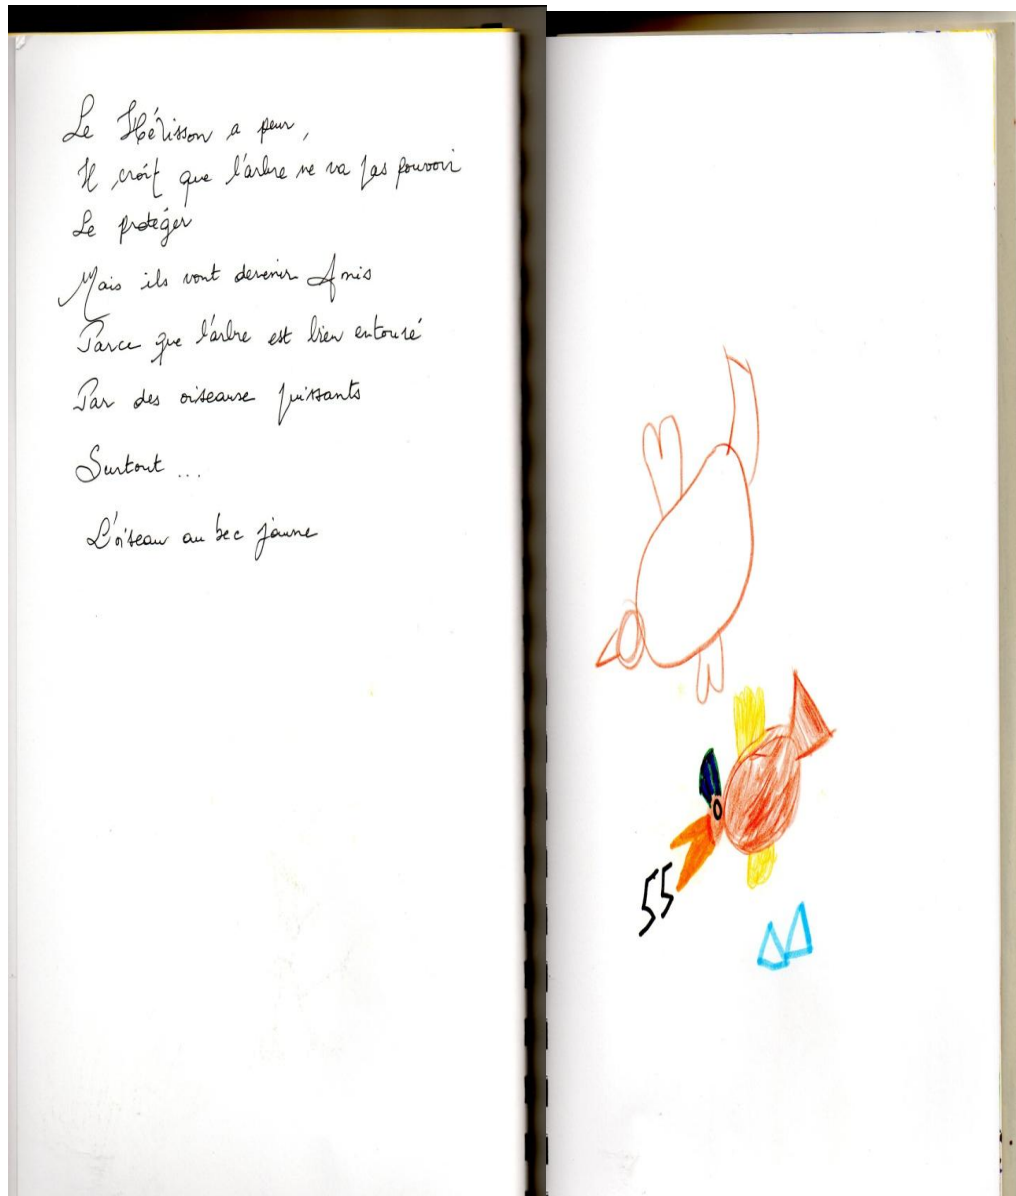 Le Hérisson a peur,
Il croît que l'arbre ne va pas pouvoir
Le protéger
Mais ils vont devenir Amis
Parce que l'arbre est bien entouré
Par des oiseaux puissants
Surtout ...
L'oiseau au bec jaune
55